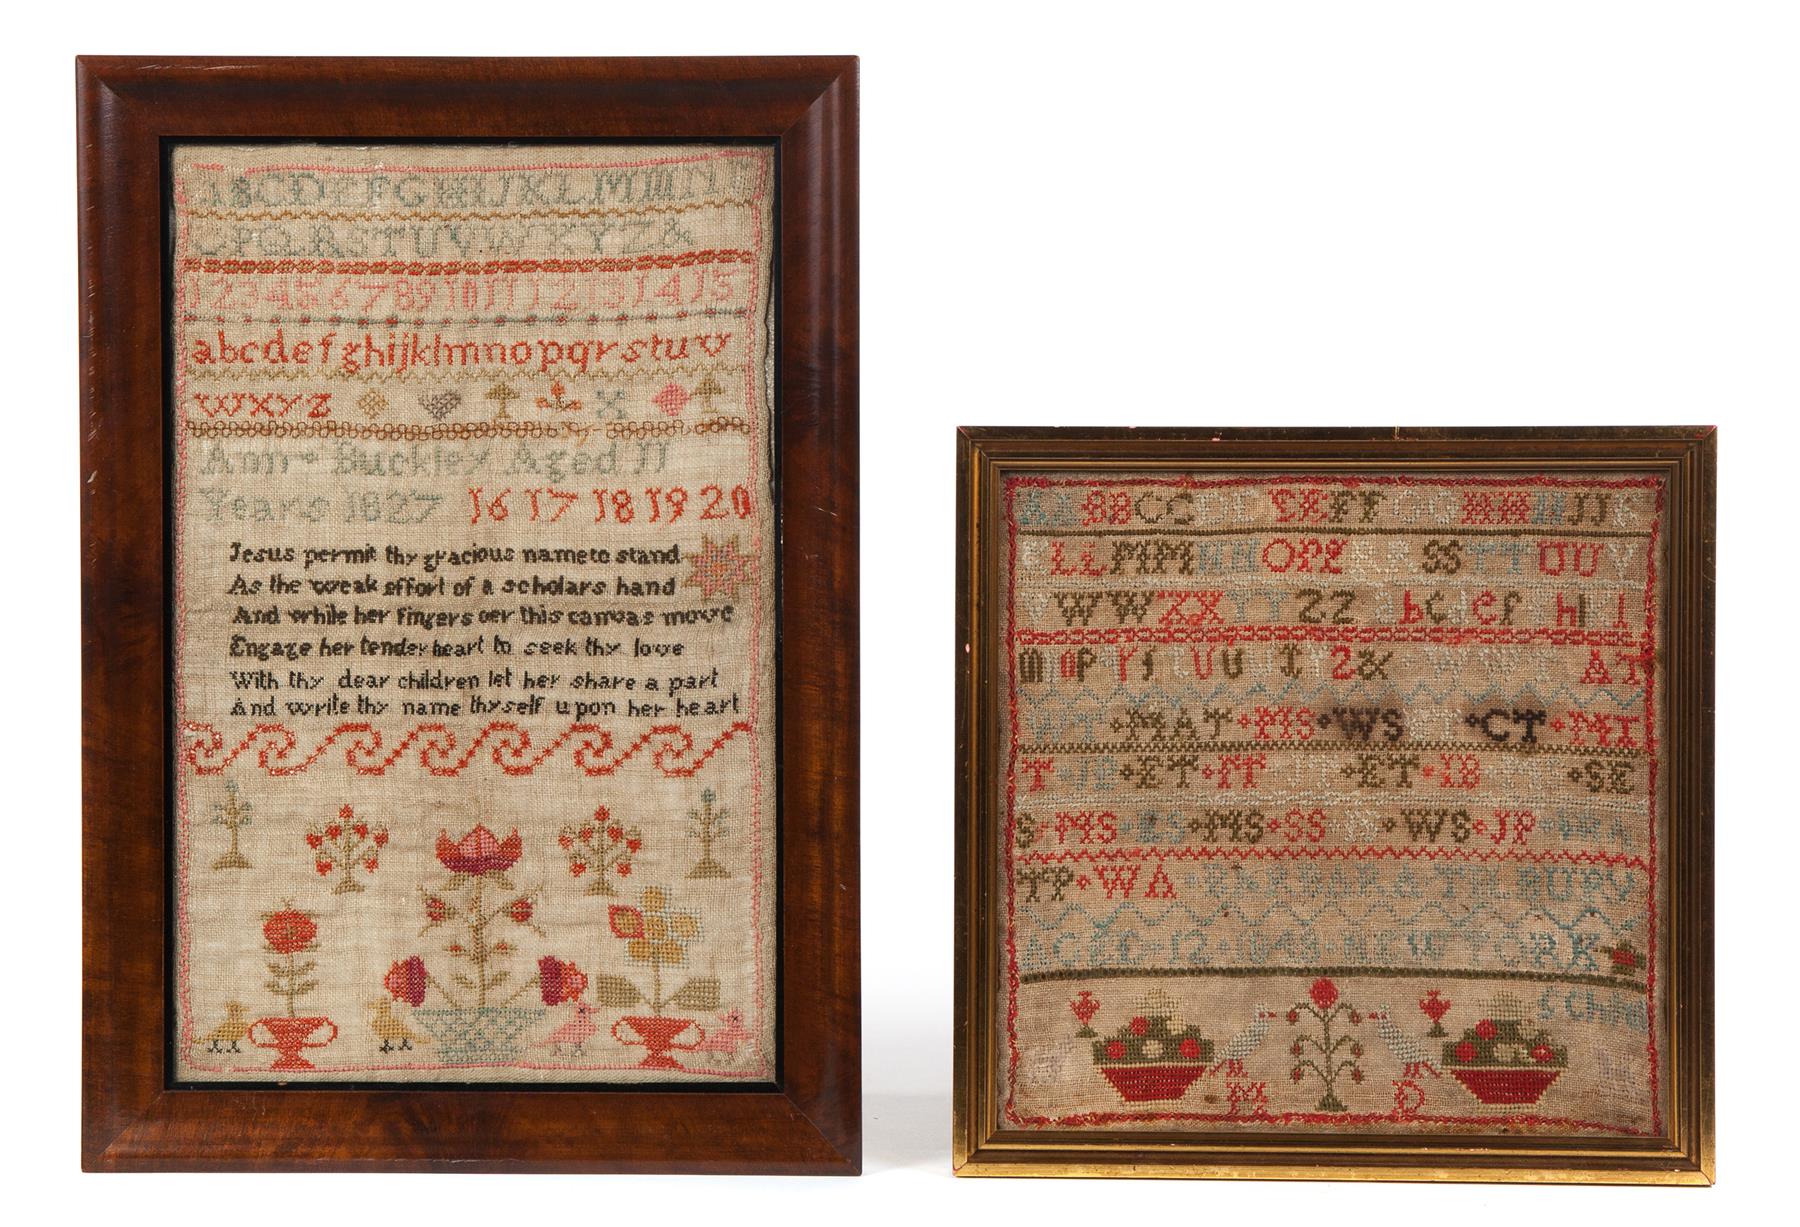 ABCDEFGHIJKLMMN
PQRSTUVWXYZ&
123456789101112131415
abcdefghijklmnopqrstuv
wxyz
Ann Buckley Aged 11
Years 1827 16 17 18 19 20
Jesus permit thy gracious name to stand
As the weak effort of a scholars hand
And while her fingers oer this canvas move
Engage her tender heart to seek thy love
With thy dear children let her share a part
And write thy name thyself upon her heart
AABBCCDDEEFFGGHHIIJJK
KLLMMNNOPPRRSSTTUUV
VWWXXYYZZ
AT
WT·MAT·MS·WS·CT·CT·MT
T·JP·ET·TT·JT·ET·IB·SE
S·MS·ES·MS·SS·WS·JP·WA
TP·WA·BARBARA
AGED·12·1848·NEWTORK
M D